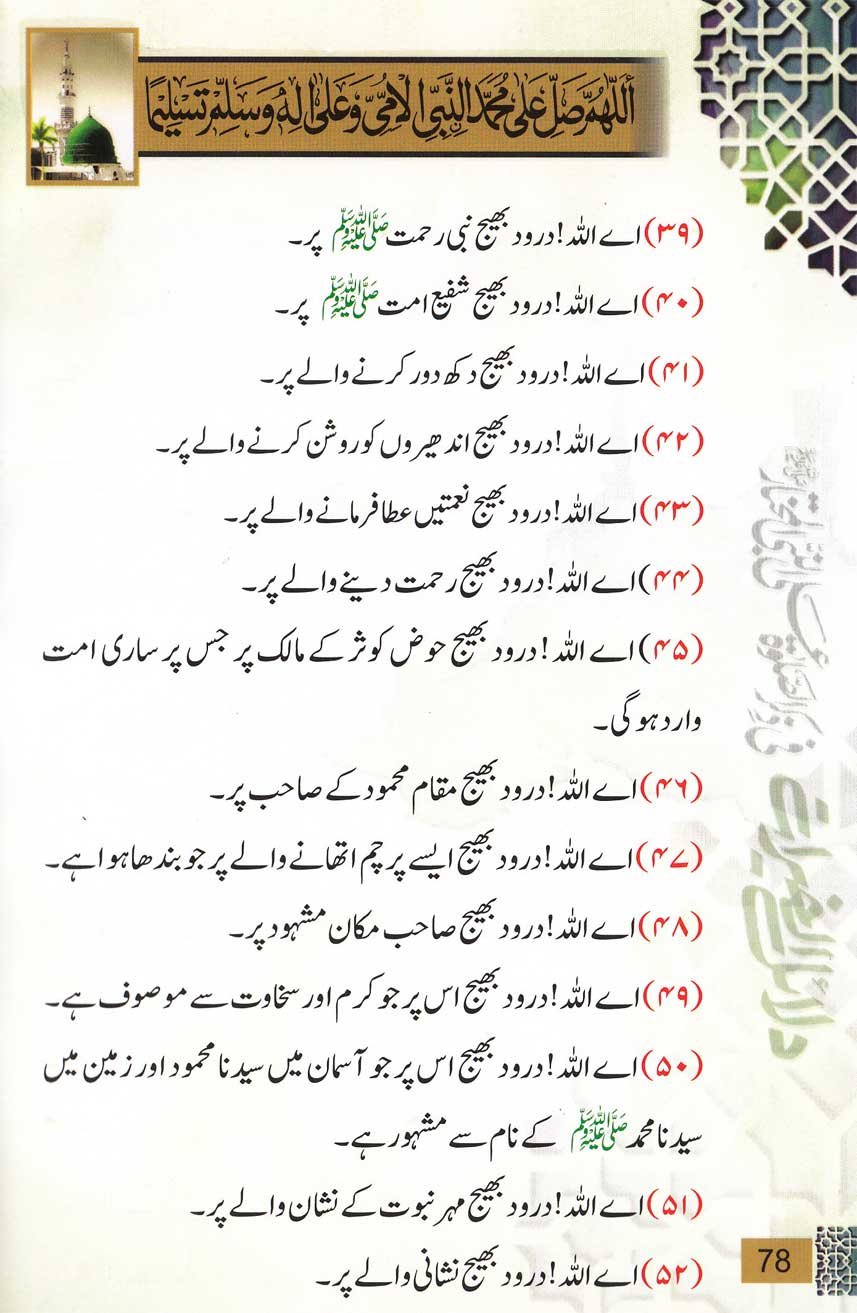 أَللّٰهُمَّ صَلِّ عَلٰى مُحَمَّدِ النَّبِيِّ الْاُمِّيِّ وَعَلٰى اٰلِهٖ وَسَلِّمْ تَسْلِيْمًا
(۳۹) اے اللہ! درود بھیج نبی رحمت ﷺ پر۔
(۴۰) اے اللہ! درود بھیج شفیع امت ﷺ پر۔
(۴۱) اے اللہ! درود بھیج دکھ دور کرنے والے پر۔
(۴۲) اے اللہ! درود بھیج اندھیروں کو روشن کرنے والے پر۔
(۴۳) اے اللہ! درود بھیج نعمتیں عطا فرمانے والے پر۔
(۴۴) اے اللہ! درود بھیج رحمت دینے والے پر۔
(۴۵) اے اللہ! درود بھیج حوض کوثر کے مالک پر جس پر ساری امت
وارد ہوگی۔
(۴۶) اے اللہ! درود بھیج مقام محمود کے صاحب پر۔
(۴۷) اے اللہ! درود بھیج ایسے پرچم اٹھانے والے پر جو بندھا ہوا ہے۔
(۴۸) اے اللہ! درود بھیج صاحب مکان مشہود پر۔
(۴۹) اے اللہ! درود بھیج اس پر جو کرم اور سخاوت سے موصوف ہے۔
(۵۰) اے اللہ! درود بھیج اس پر جو آسمان میں سیدنا محمود اور زمین میں
سیدنا محمد ﷺ کے نام سے مشہور ہے۔
(۵۱) اے اللہ! درود بھیج مہر نبوت کے نشان والے پر۔
(۵۲) اے اللہ! درود بھیج نشانی والے پر۔
دلائل الخیرات
78